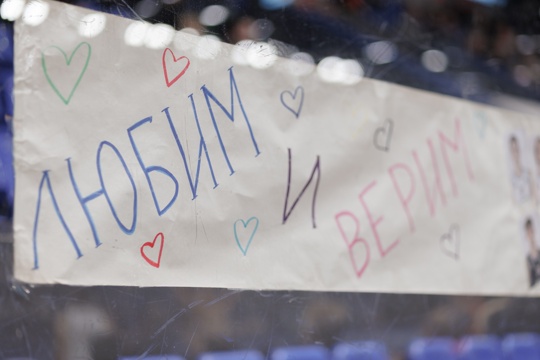 ЛЮБИМ И ВЕРИМ